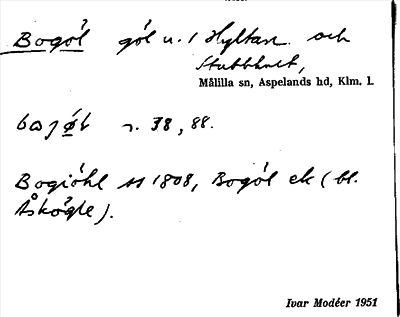 Bogöl göl u. / Hyltan och
Stubbhult,
Målilla sn, Aspelands hd, Klm. l.
r. 38, 88.
Bogiöhl ss 1808, Bogöl ek (bl.
Åskögle).
Ivar Modéer 1951